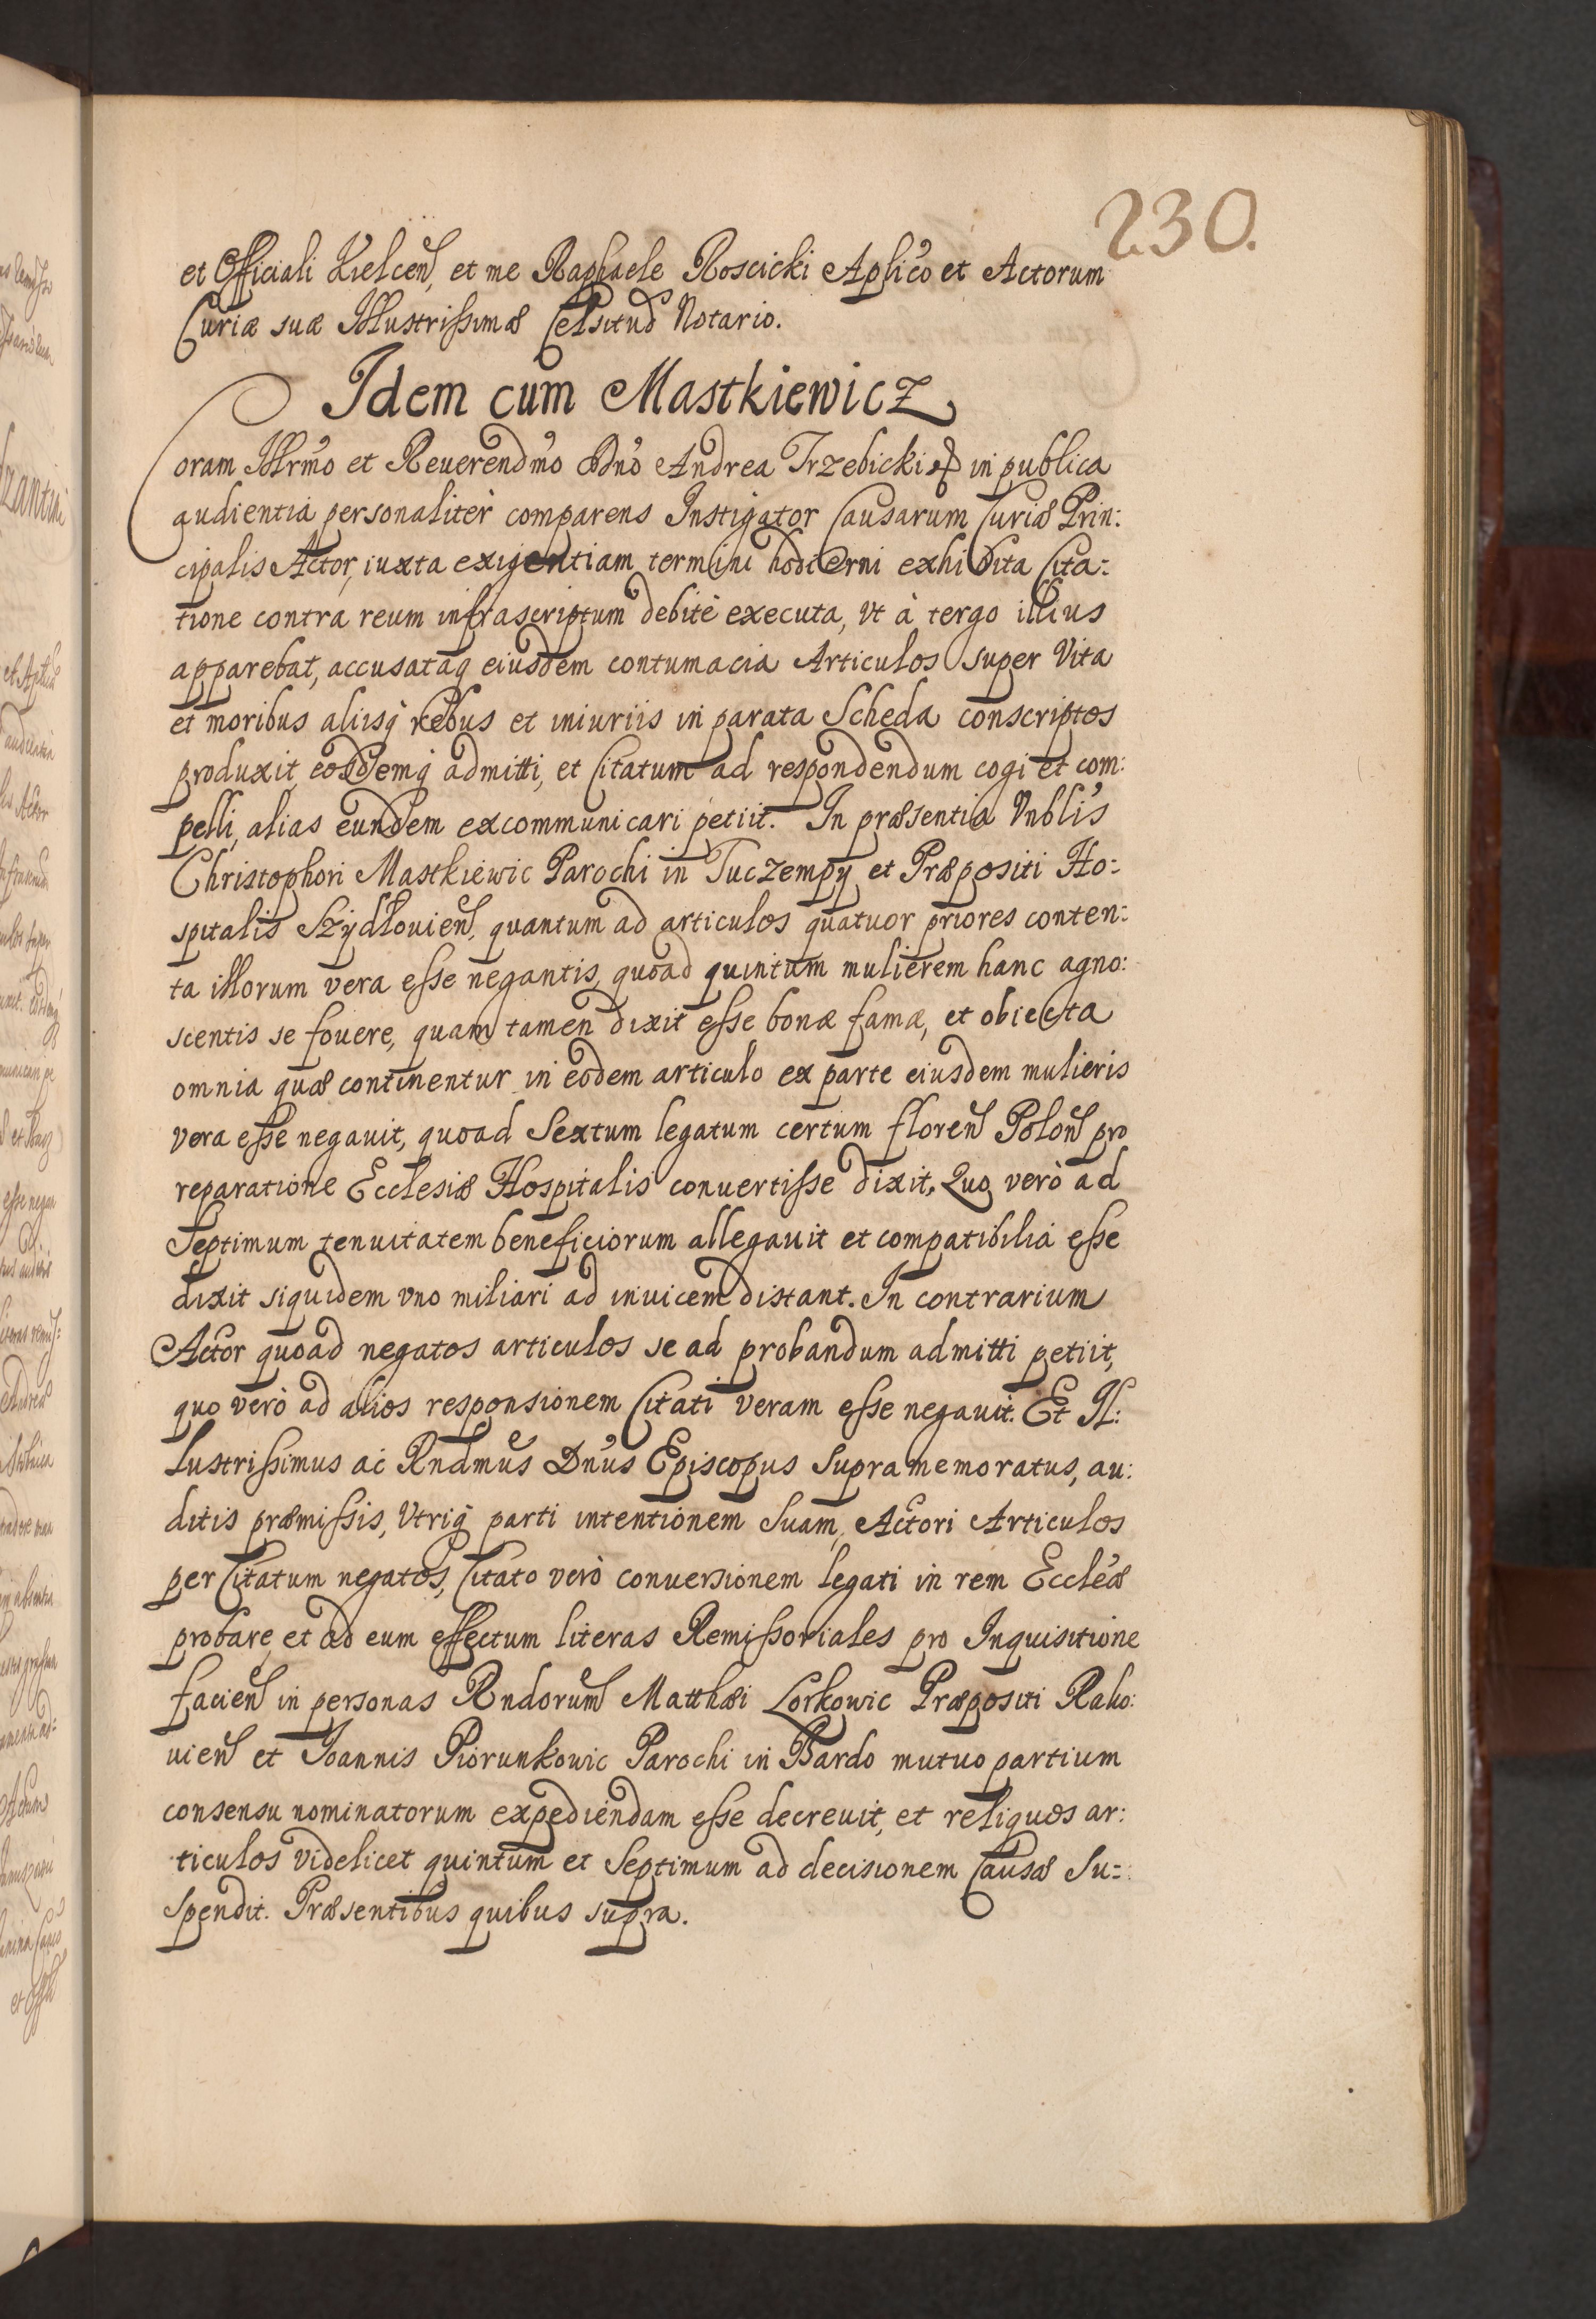 230.
et Officiali Kielcen, et me Raphaele Roscicki Aplico et Actorum
Curiæ suæ Illustrissimæ Celsitud Notario.
Idem cum Mastkiewicz
Coram Illrmo et Reuerendmo Dno Andrea Trzebicki & in publica
audientia personaliter comparens Instigator Causarum Curiæ Prin:
cipalis Actor, iuxta exigentiam termini hodierni exhibita Cita:
tione contra reum infrascriptum debitè executa, vt à tergo illius
apparebat, accusataq eiusdem contumacia Articulos super Vita
et moribus aliisq rebus et iniuriis in parata Scheda conscriptos
produxit, eosdemq admitti, et Citatum ad respondendum cogi et com:
pelli, alias eundem excommunicari petiit. In præsentia Vnblis
Christophori Mastkiewic Parochi in Tuczempy et Præpositi Ho:
spitalis Szydlouien, quantum ad articulos quatuor priores conten:
ta illorum vera esse negantis, quoad quintum mulierem hanc agno:
scentis se fouere, quam tamen dixit esse bonæ famæ, et obiecta
omnia quæ continentur in eodem articulo ex parte eiusdem mulieris
vera esse negauit, quoad Sextum legatum certum floren Polon pro
reparatione Ecclesiæ Hospitalis conuertisse dixit, Quo verò ad
Septimum tenuitatem beneficiorum allegauit et compatibilia esse
dixit siquidem vno miliari ad inuicem distant. In contrarium
Actor quoad negatos articulos se ad probandum admitti petiit,
quo verò ad alios responsionem Citati veram esse negauit. Et Il:
lustrissimus ac Rndmus Dnus Episcopus Supra memoratus, au:
ditis præmissis, Vtriq parti intentionem Suam, Actori Articulos
per Citatum negatos, Citato verò conuersionem legati in rem Eccleæ
probare, et ad eum effectum literas Remissoriales pro Inquisitione
facien in personas Rndorum Matthæi Lorkowic Præpositi Rako:
uien et Joannis Piorunkowic Parochi in Bardo mutuo partium
consensu nominatorum expediendam esse decreuit, et reliquos ar:
ticulos videlicet quintum et Septimum ad decisionem Causæ Su:
spendit. Præsentibus quibus supra.